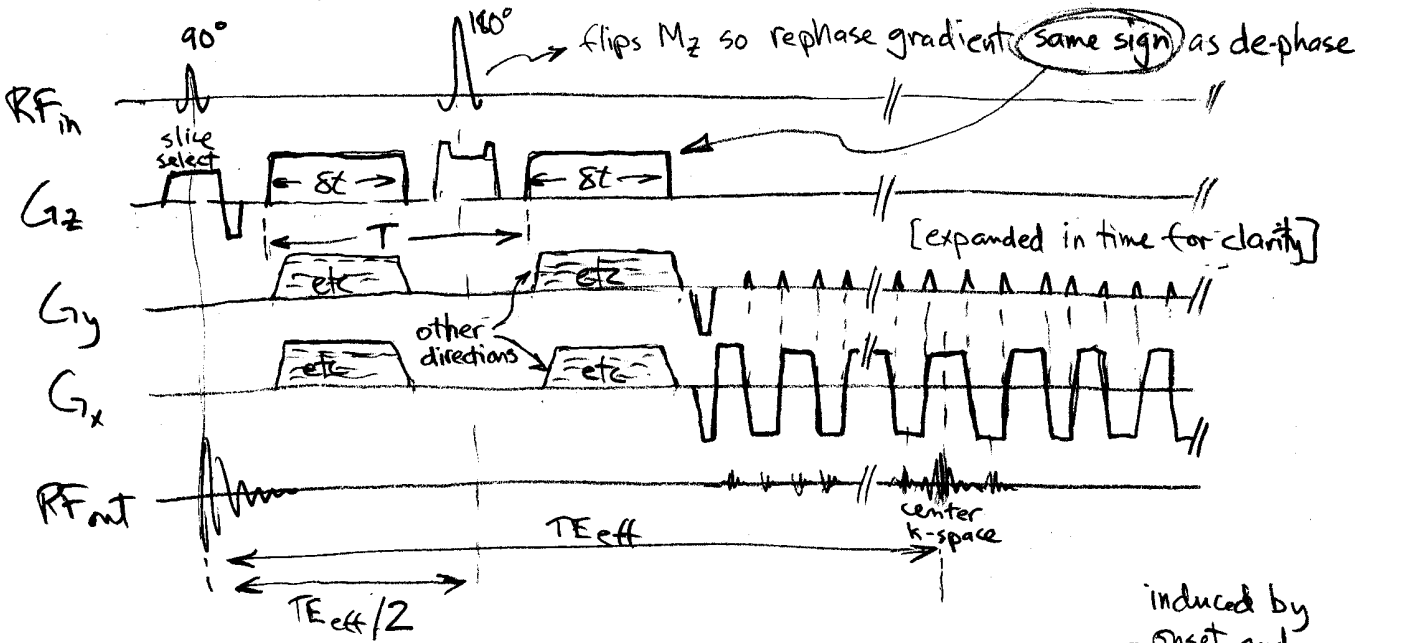 90°
180°
flips Mz so rephase gradient same sign as de-phase
RFin
slice
select
δt
δt
Gz
T
[expanded in time for clarity]
etc
etc
Gy
other
directions
etc
etc
Gx
RFout
center
k-space
TEeff
TEeff/2
induced by
onset and